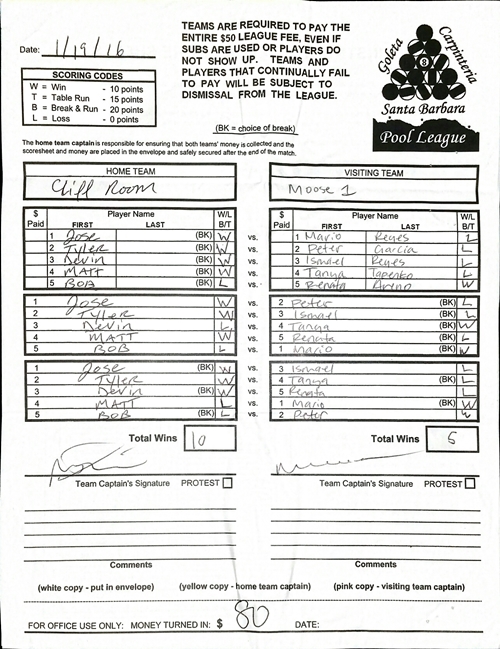 Date: 1/19/16
TEAMS ARE REQUIRED TO PAY THE
ENTIRE $50 LEAGUE FEE, EVEN IF
SUBS ARE USED OR PLAYERS DO
NOT SHOW UP. TEAMS AND
PLAYERS THAT CONTINUALLY FAIL
TO PAY WILL BE SUBJECT TO
DISMISSAL FROM THE LEAGUE.
Goleta
Carpinteria
8
Santa Barbara
Pool League
SCORING CODES
W = Win - 10 points
T = Table Run - 15 points
B = Break & Run - 20 points
L = Loss - 0 points
(BK = choice of break)
The home team captain is responsible for ensuring that both teams' money is collected and the
scoresheet and money are placed in the envelope and safely secured after the end of the match.
HOME TEAM VISITING TEAM
Cliff Room Moose 1
$ Paid Player Name FIRST LAST W/L B/T $ Paid Player Name FIRST LAST W/L B/T
1 Jose (BK) W vs. 1 Mario Reyes L
2 Tyler (BK) W vs. 2 Peter Garcia L
3 Devin (BK) W vs. 3 Ismael Reyes L
4 MATT (BK) W vs. 4 Tanya Tapenko L
5 BOB (BK) L vs. 5 Renata W
1 Jose W vs. 2 Peter (BK) L
2 Tyler W vs. 3 Ismael (BK) L
3 Devin L vs. 4 Tanya (BK) W
4 MATT W vs. 5 Renata (BK) L
5 BOB L vs. 1 Mario (BK) W
1 Jose (BK) W vs. 3 Ismael L
2 Tyler W vs. 4 Tanya (BK) L
3 Devin (BK) W vs. 5 Renata L
4 MATT L vs. 1 Mario (BK) W
5 BOB (BK) L vs. 2 Peter W
Total Wins 10 Total Wins 5
Team Captain's Signature PROTEST Team Captain's Signature PROTEST
Comments Comments
(white copy - put in envelope) (yellow copy - home team captain) (pink copy - visiting team captain)
FOR OFFICE USE ONLY: MONEY TURNED IN: $ 80 DATE: